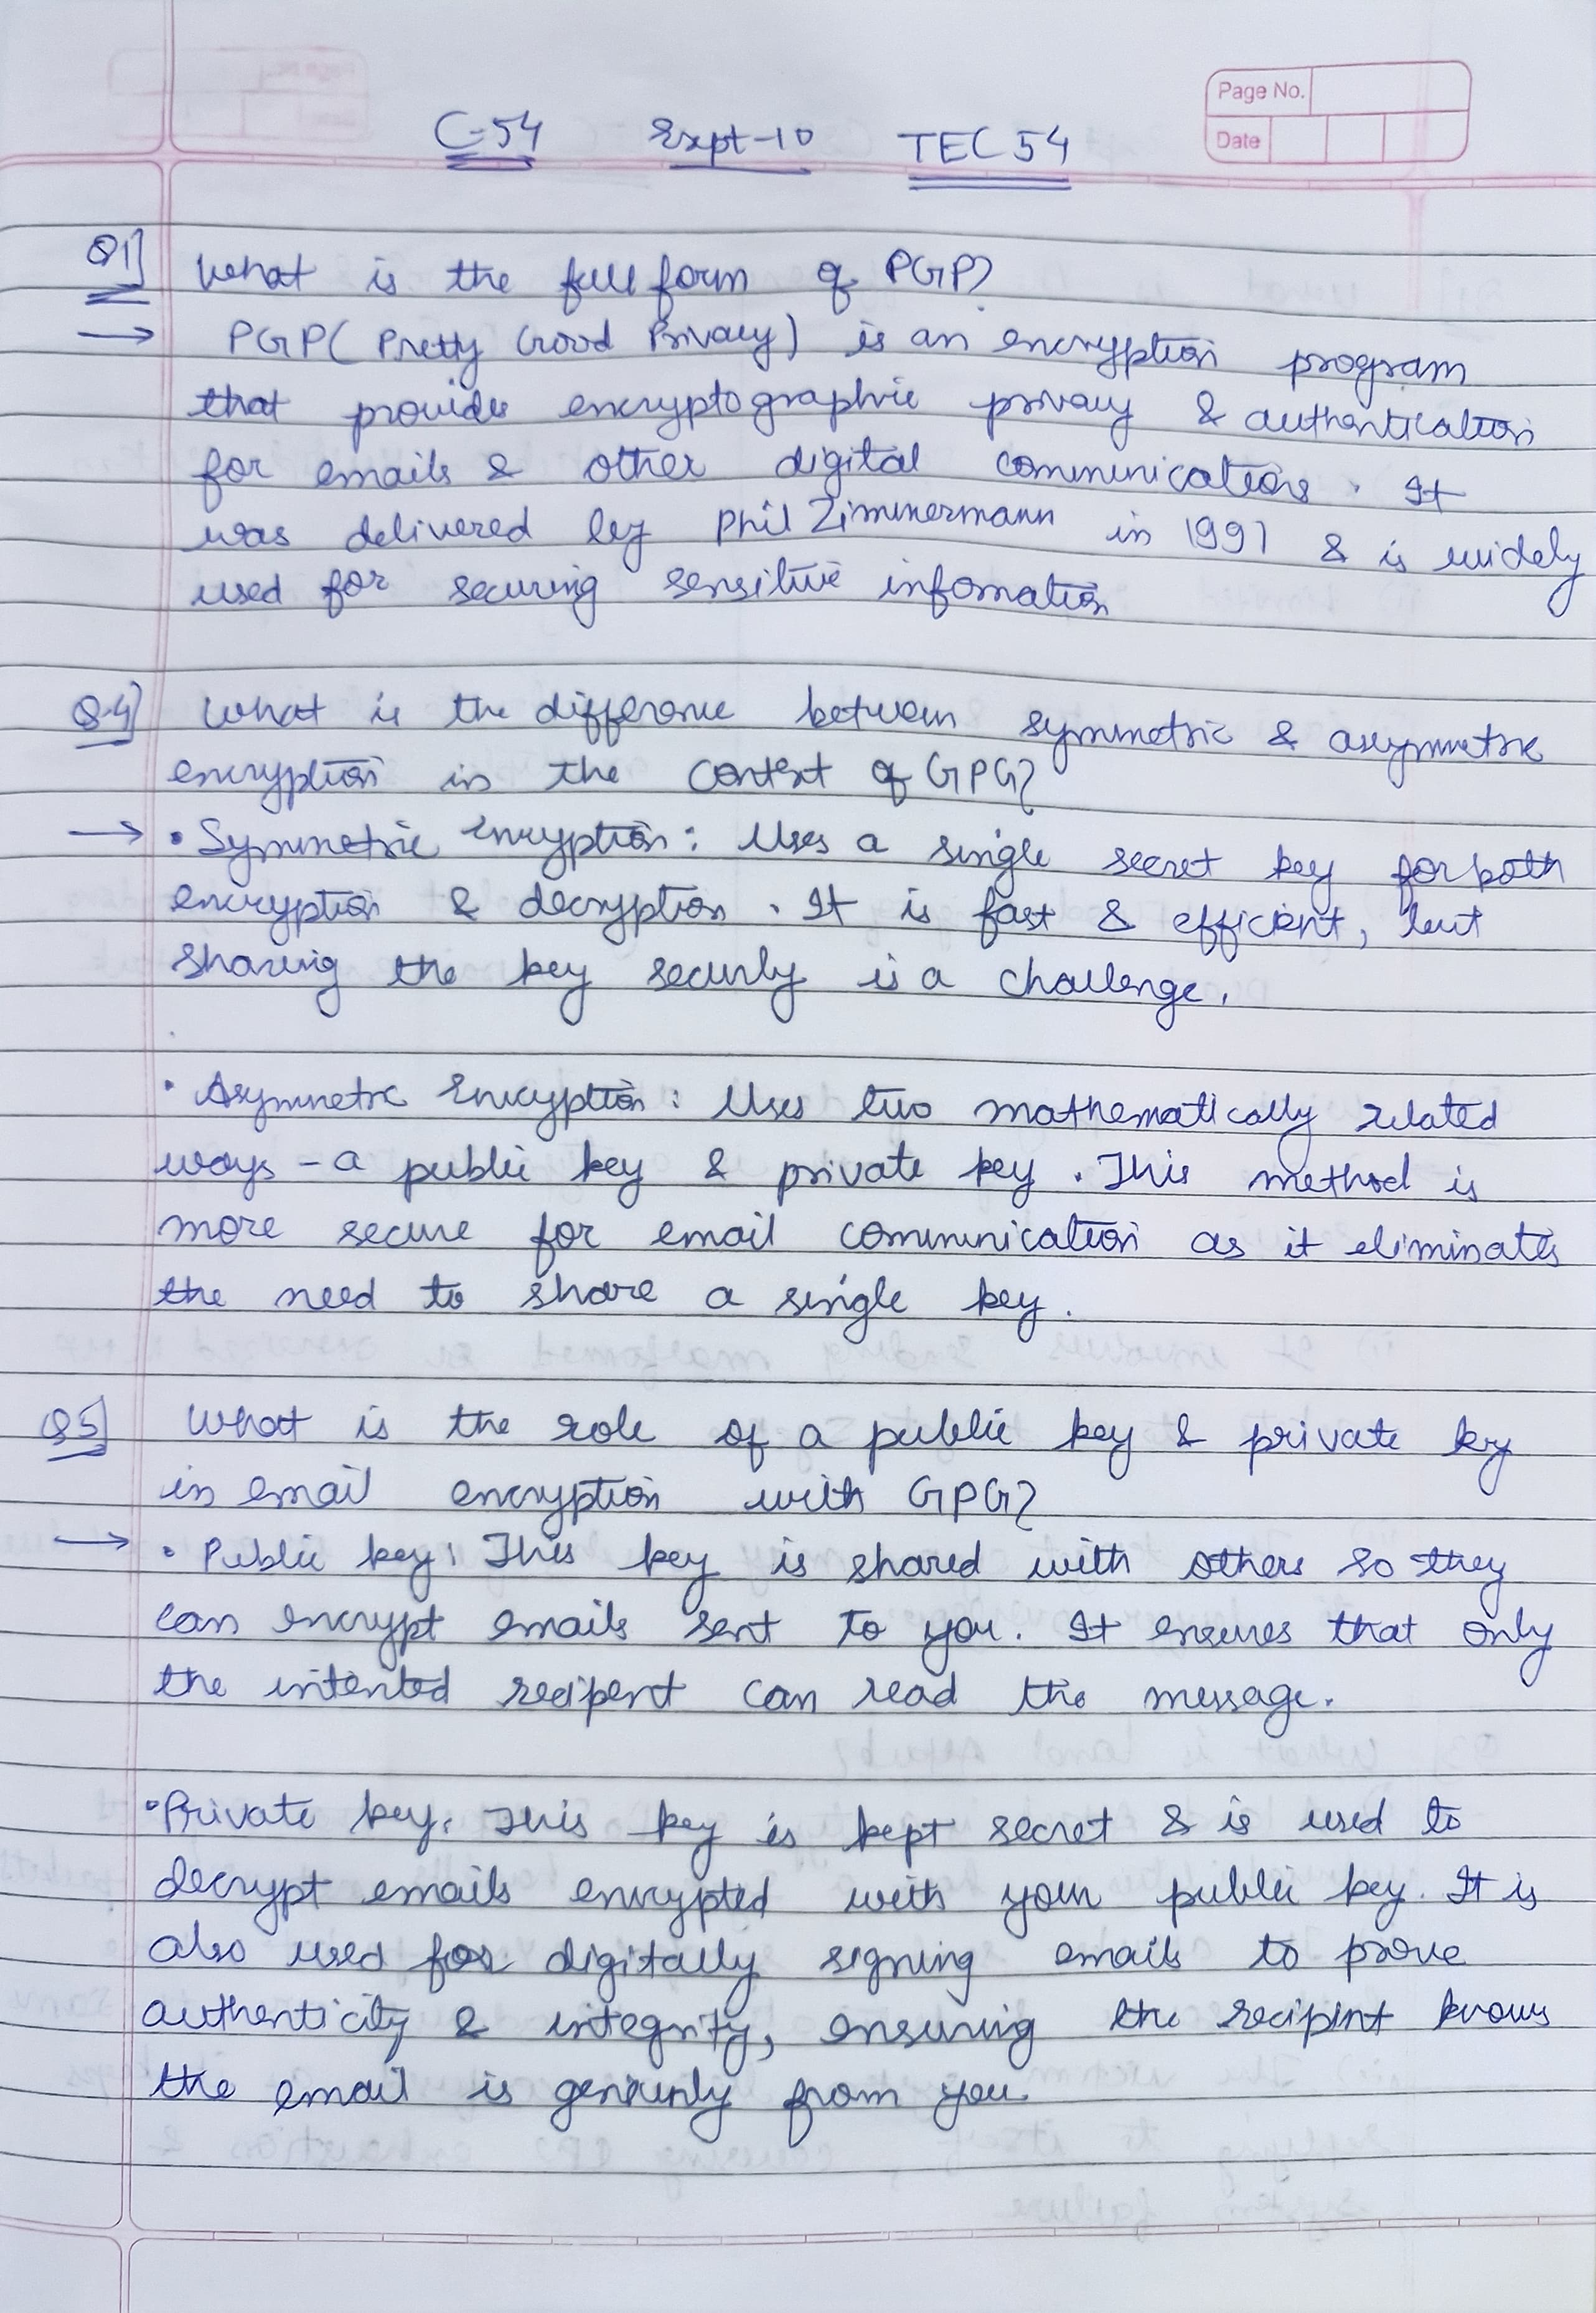 Page No.
Date
C-54 Expt-10 TEC 54
Q1] What is the full form of PGP?
→ PGP( Pretty Good Privacy) is an encryption program
that provides encryptographic privacy & authentication
for emails & other digital communications. It
was delivered by Phil Zimmermann in 1991 & is widely
used for securing sensitive infomation
Q.4] What is the difference between symmetric & asymmetric
encryption in the context of GPG?
→ • Symmetric Encryption: Uses a single secret key for both
encryption & decryption. It is fast & efficient, but
sharing the key securly is a challenge.
• Asymmetric Encryption: Uses two mathematically related
ways - a public key & private key. This method is
more secure for email communication as it eliminates
the need to share a single key.
Q5] What is the role of a public key & private key
in email encryption with GPG?
→ • Public key: This key is shared with others so they
can encrypt emails sent to you. It ensures that only
the intented recipent can read the message.
• Private key: This key is kept secret & is used to
decrypt emails encrypted with your public key. It is
also used for digitally signing emails to prove
authenticity & integrity, ensuring the recipint knows
the email is geniunly from you.